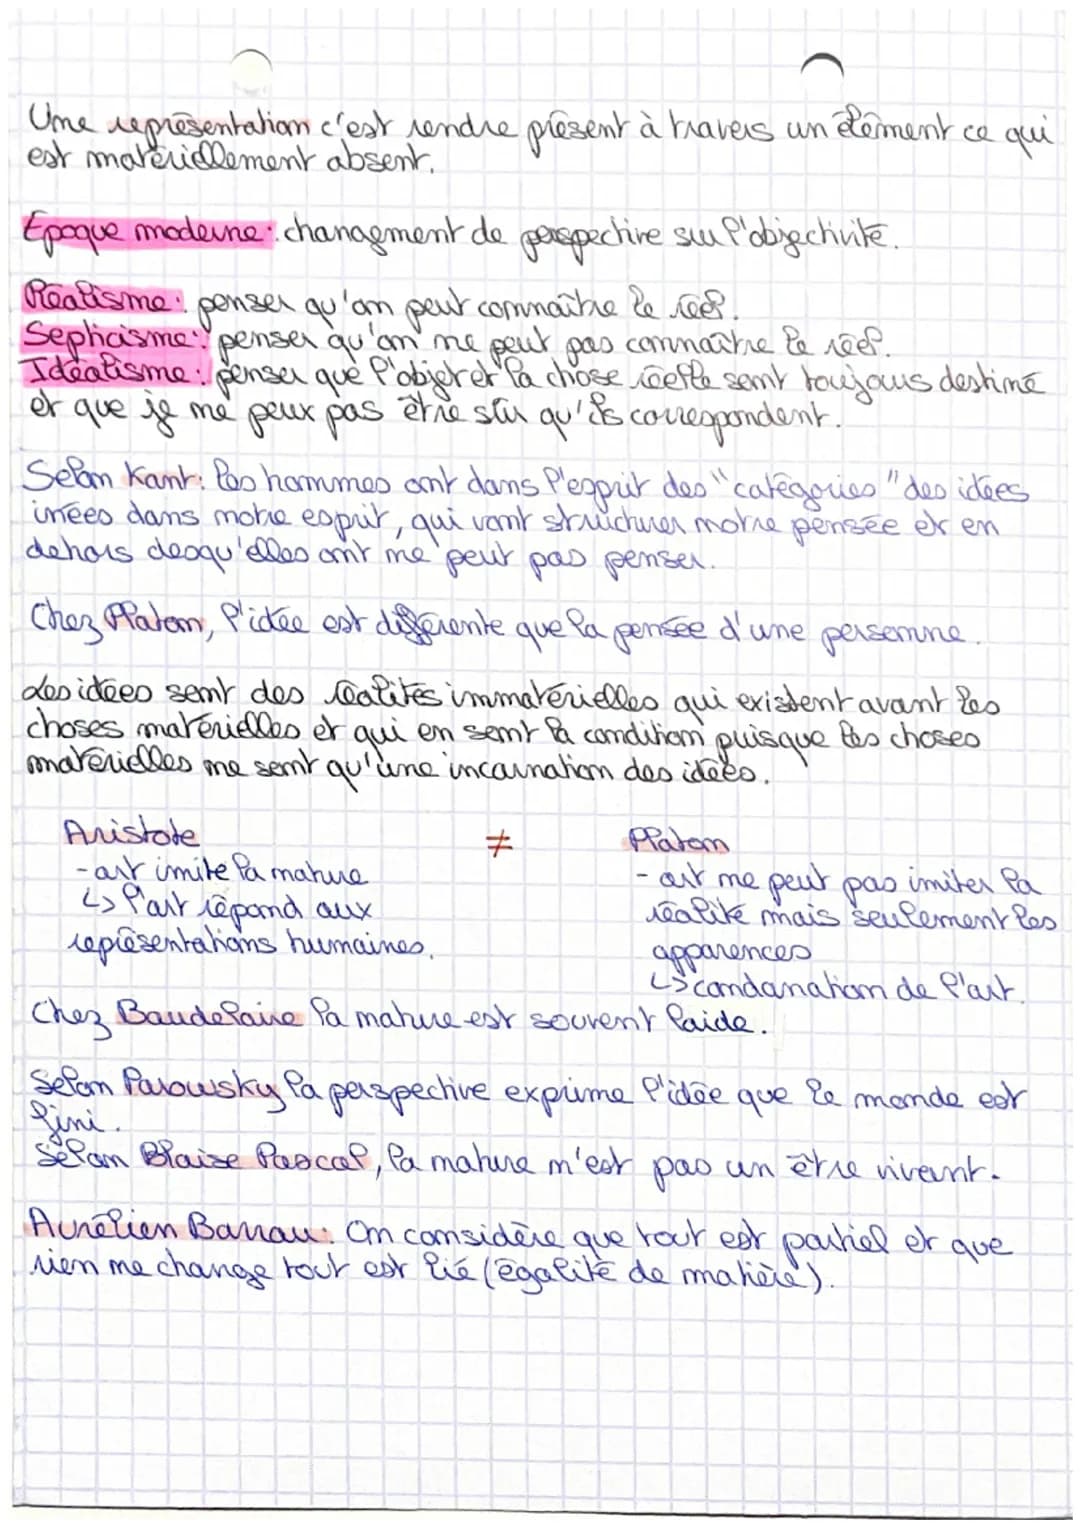 Une représentation c'est rendre présent à travers un élément ce qui
est matériellement absent.
Epoque moderne : changement de perspective sur l'objectivité.
Réalisme : penser qu'on peut connaître le réel.
Septicisme : penser qu'on ne peut pas connaître le réel.
Idéalisme : penser que l'objet et la chose réelle sont toujours destiné
et que je ne peux pas être sûr qu'ils correspondent.
Selon Kant : les hommes ont dans l'esprit des "catégories" des idées
inées dans notre esprit, qui vont structurer notre pensée et en
dehors desqu'elles ont ne peut pas penser.
Chez Platon, l'idée est différente que la pensée d'une personne.
Les idées sont des réalités immatérielles qui existent avant les
choses matérielles et qui en sont la condition puisque les choses
matérielles ne sont qu'une incarnation des idées.
Aristote ≠ Platon
- art imite la nature
↳ l'art répond aux
représentations humaines.
- art ne peut pas imiter la
réalité mais seulement les
apparences
↳ condanation de l'art.
Chez Baudelaire la nature est souvent laide.
Selon Parowsky la perspective exprime l'idée que le monde est
fini.
Selon Blaise Pascal, la nature n'est pas un être vivant.
Aurélien Barrau : On considère que tout est partiel et que
rien ne change tout est lié (égalité de matière).